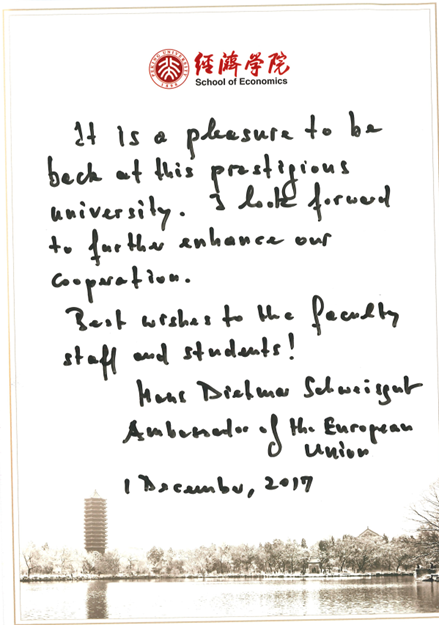 經濟學院
School of Economics
It is a pleasure to be
back at this prestigious
university. I look forward
to further enhance our
cooperation.
Best wishes to the faculty
staff and students!
Hans Dietmar Schweisgut
Ambassador of the European
Union
1 December, 2017